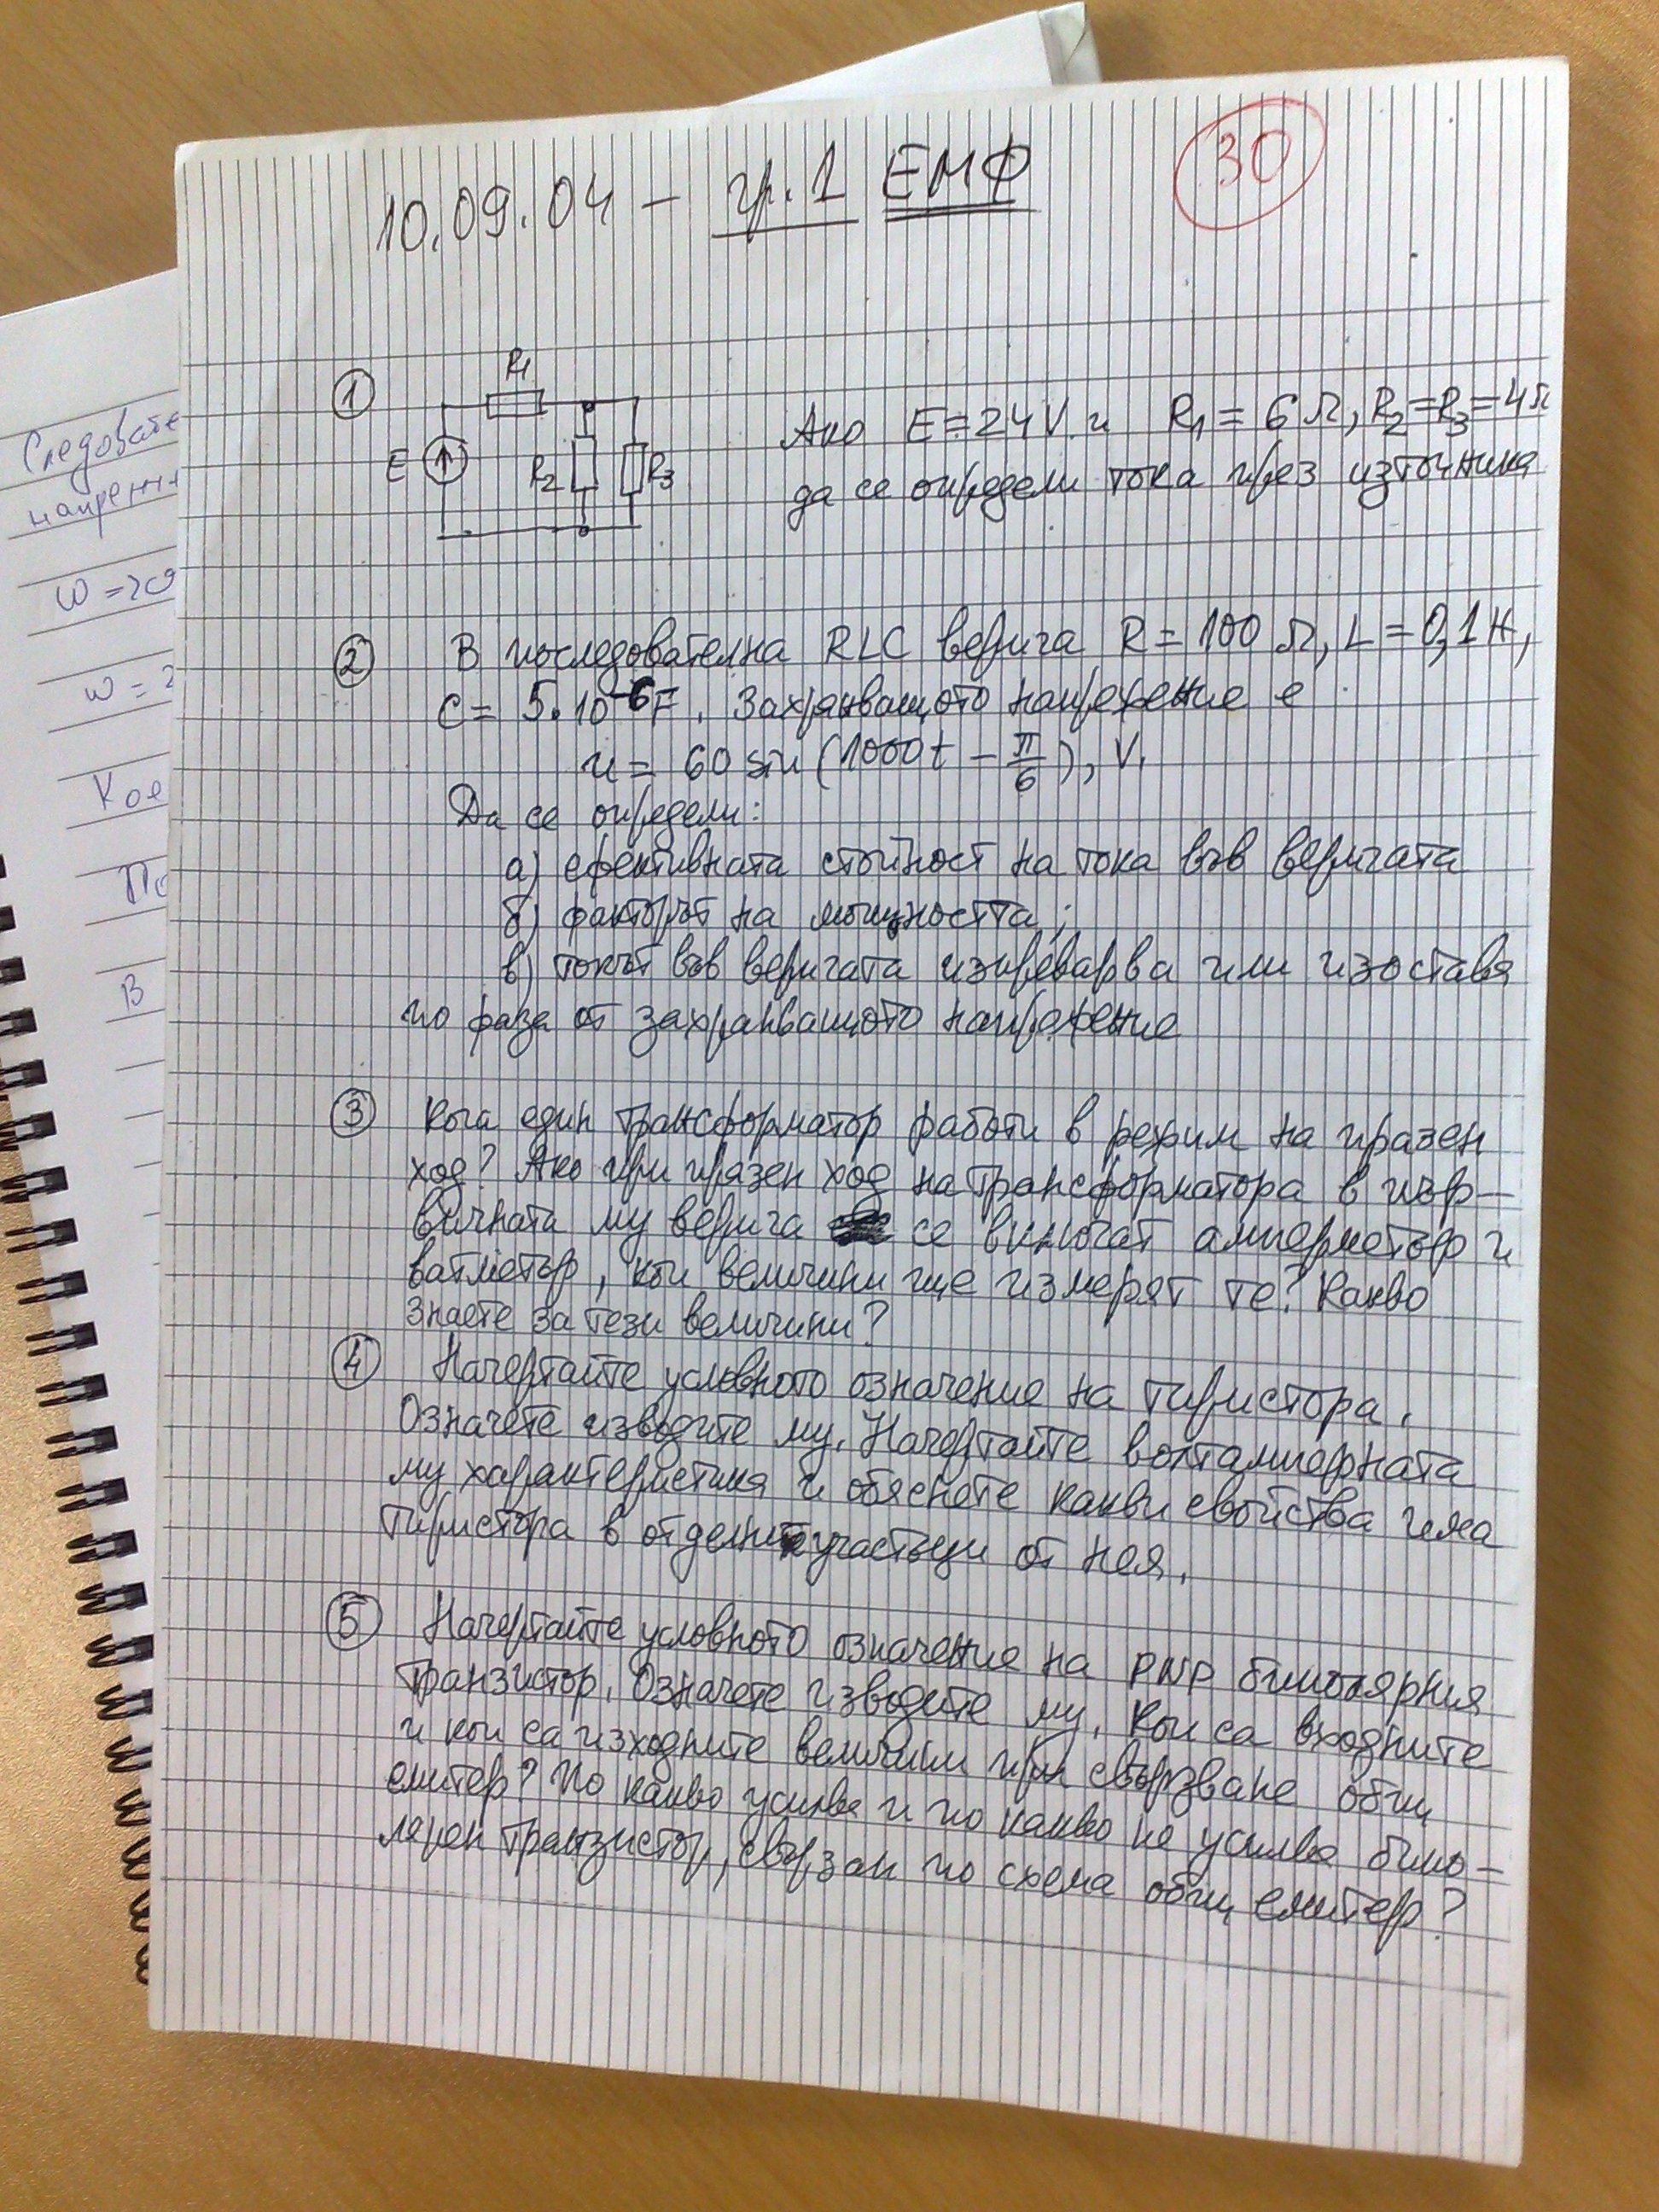 10.09.04 - гр. 1 ЕМФ
30
1
R1
E
R2
R3
Ако E = 24 V и R1 = 6 Ω, R2 = R3 = 4 Ω
да се определи тока през източника
2 В последователна RLC верига R = 100 Ω, L = 0,1 H,
C = 5.10^-6 F. Захранващото напрежение е
u = 60 sin (1000t - π/6), V.
Да се определи:
а) ефективната стойност на тока във веригата
б) факторът на мощността;
в) токът във веригата изпреварва или изостава
по фаза от захранващото напрежение
3 Кога един трансформатор работи в режим на празен
ход? Ако при празен ход на трансформатора в пър-
вичната му верига се включат амперметър и
ватметър, кои величини ще измерят те? Какво
знаете за тези величини?
4 Начертайте условното означение на тиристора.
Означете изводите му. Начертайте волтамперната
му характеристика и обяснете какви свойства има
тиристора в отделните участъци от нея.
5 Начертайте условното означение на PNP биполярния
транзистор. Означете изводите му. Кои са входните
и кои са изходните величини при свързване общ
емитер? По какво усилва и по какво не усилва бипо-
лярен транзистор, свързан по схема общ емитер?
Следовате
напреж
ω =
ω = 2
Кое
По
В